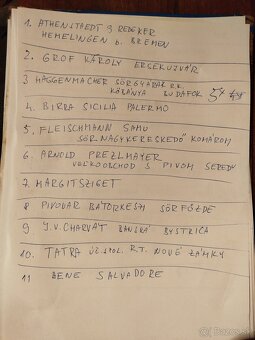 1. ATHENSTAEDT & REDEKER
HEMELINGEN b. BREMEN
2. GRÓF KÁROLY ERSEKUJVÁR
3 HAGGENMACHER SÖRGYÁRAK R.R.
KÖBÁNYA BUDAFOK
4. BIRRA SICILIA PALERMO
5. FLEISCHMANN SAMU
SÖRNAGYKERESKEDŐ KOMÁROM
6. ARNOLD PREZLMAYER
VEĽKOOBCHOD S PIVOM SEREDY
7. MARGITSZIGET
8 PIVOVAR BÁTORKESZI SÖRFŐZDE
9 J.V. CHARVÁT BANSKÁ BYSTRICA
10. TATRA ÚČ. SPOL. R.T. NOVÉ ZÁMKY
11 BENE SALVADORE